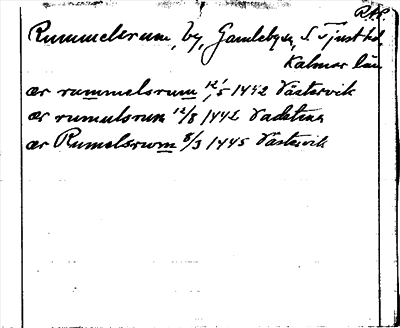 RAP.
Rummelsrum, by, Gamleby sn, S. Tjust hd.
Kalmar län
ær rummelsrum 12/5 1442 Västervik
ær rumulsrum 12/8 1442 Vadstena
ær Rumelsrwm 8/3 1445 Västervik